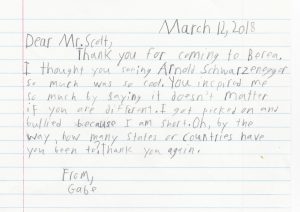 March 12, 2018
Dear Mr. Scott,
Thank you for coming to Berea.
I thought you seeing Arnold Schwarzenegger
so much was so cool. You inspired me
so much by saying it doesn't matter
if you are different. I get picked on and
bullied because I am short. Oh, by the
way, how many states or countries have
you been to? Thank you again.
From,
Gabe